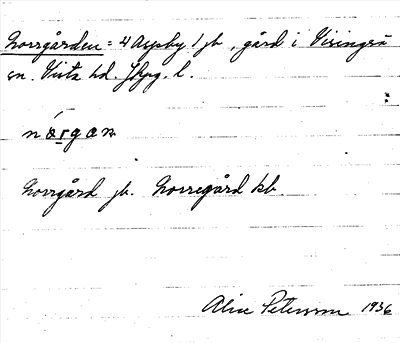 Norrgården = 4 Aspby 1 jb, gård i Visingsö
sn. Vista hd. Jkpg. l.
nǻrgan
Norrgård jb. Norregård kb.
Alice Petersson 1936